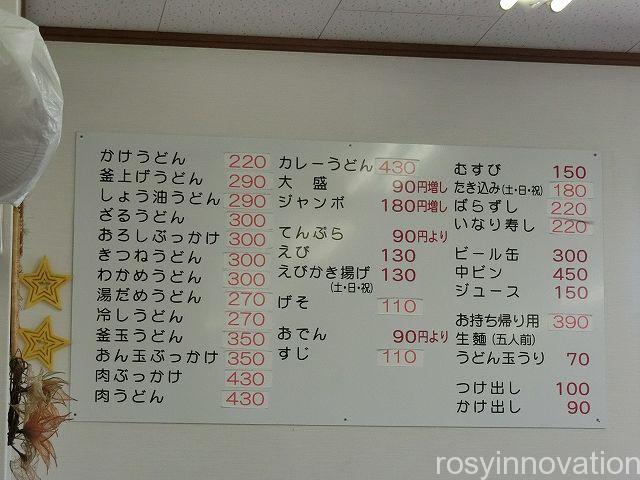 かけうどん 220
釜上げうどん 290
しょう油うどん 290
ざるうどん 300
おろしぶっかけ 300
きつねうどん 300
わかめうどん 300
湯だめうどん 270
冷しうどん 270
釜玉うどん 350
おん玉ぶっかけ 350
肉ぶっかけ 430
肉うどん 430
カレーうどん 430
大盛 90円増し
ジャンボ 180円増し
てんぷら 90円より
えび 130
えびかき揚げ 130
(土・日・祝)
げそ 110
おでん 90円より
すじ 110
むすび 150
たき込み(土・日・祝) 180
ばらずし 220
いなり寿し 220
ビール缶 300
中ビン 450
ジュース 150
お持ち帰り用 390
生麺(五人前)
うどん玉うり 70
つけ出し 100
かけ出し 90
rosyinnovation